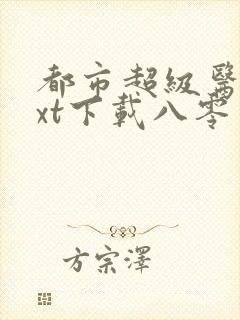 都市超級醫
xt下載八零
方宗澤